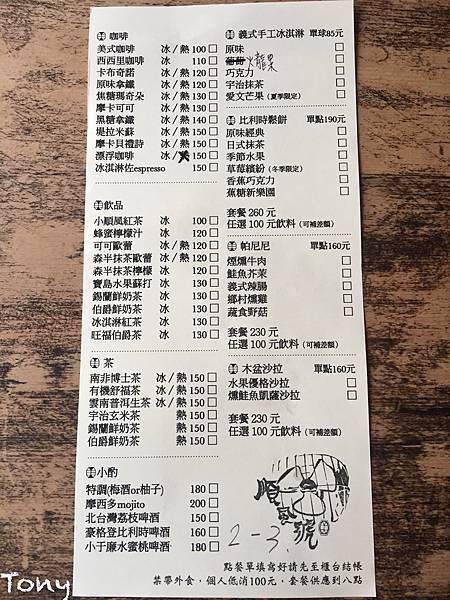 咖啡
美式咖啡 冰/熱 100 □
西西里咖啡 冰 110 □
卡布奇諾 冰/熱 120 □
原味拿鐵 冰/熱 120 □
焦糖瑪奇朵 冰/熱 130 □
摩卡可可 冰/熱 130 □
黑糖拿鐵 冰/熱 140 □
堤拉米蘇 冰/熱 150 □
摩卡貝禮詩 冰/熱 150 □
漂浮咖啡 冰/ 150 □
冰淇淋佐espresso 150 □
飲品
小順風紅茶 冰 100 □
蜂蜜檸檬汁 冰 120 □
可可歐蕾 冰/熱 120 □
森半抹茶歐蕾 冰/熱 120 □
森半抹茶檸檬 冰 120 □
寶島水果蘇打 冰 130 □
錫蘭鮮奶茶 冰 130 □
伯爵鮮奶茶 冰 130 □
冰淇淋紅茶 冰 130 □
旺福伯爵茶 冰 130 □
茶
南非博士茶 冰/熱 150 □
有機舒福茶 冰/熱 150 □
雲南普洱生茶 冰/熱 150 □
宇治玄米茶 熱 150 □
錫蘭鮮奶茶 熱 150 □
伯爵鮮奶茶 熱 150 □
小酌
特調(梅酒or柚子) 180 □
摩西多mojito 200 □
北台灣荔枝啤酒 150 □
豪格登比利時啤酒 160 □
小于廉水蜜桃啤酒 180 □
義式手工冰淇淋 單球85元
原味 □
火龍果 □
巧克力 □
宇治抹茶 □
愛文芒果 (夏季限定) □
比利時鬆餅 單點190元
原味經典 □
日式抹茶 □
季節水果 □
草莓繽紛 (冬季限定) □
香蕉巧克力 □
蕉糖新樂園 □
套餐 260 元
任選 100 元飲料 (可補差額)
帕尼尼 單點160元
煙燻牛肉 □
鮭魚芥茉 □
義式辣腸 □
鄉村燻雞 □
蔬食野菇 □
套餐 230 元
任選 100 元飲料 (可補差額)
木盆沙拉 單點160元
水果優格沙拉 □
燻鮭魚凱薩沙拉 □
套餐 230 元
任選 100 元飲料 (可補差額)
順風號
2-3
點餐單填寫好請先至櫃台結帳
禁帶外食，個人低消100元，套餐供應到八點
Tony